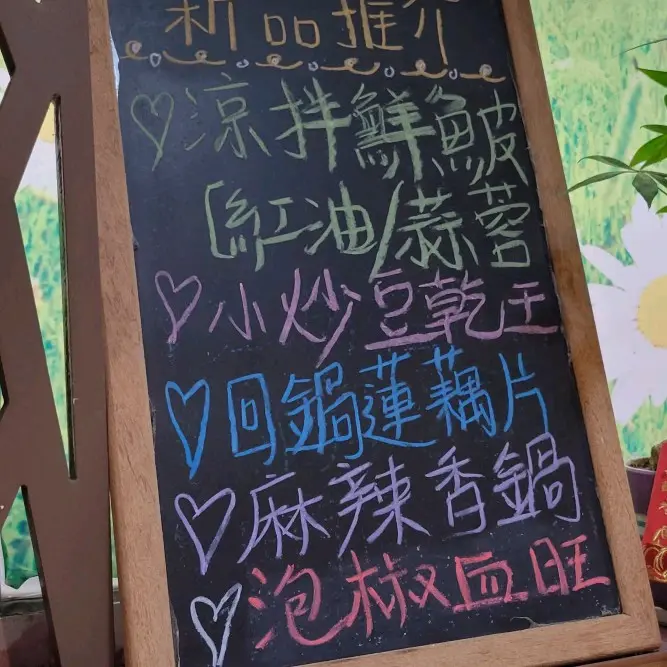 新品推介
涼拌鮮鮍
(紅油/蒜蓉
小炒豆乾王
回鍋蓮藕片
麻辣香鍋
泡椒血旺